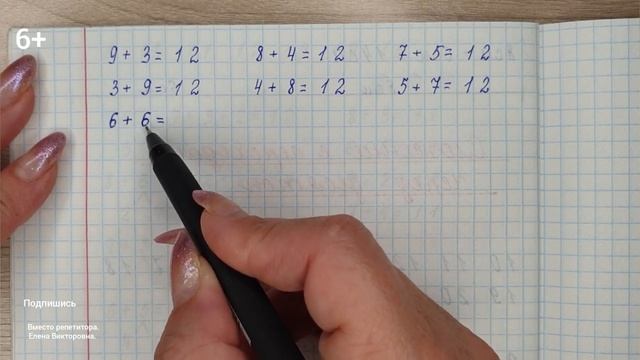 6+
9 + 3 = 12 8 + 4 = 12 7 + 5 = 12
3 + 9 = 12 4 + 8 = 12 5 + 7 = 12
6 + 6 =
Подпишись
Вместо репетитора.
Елена Викторовна.